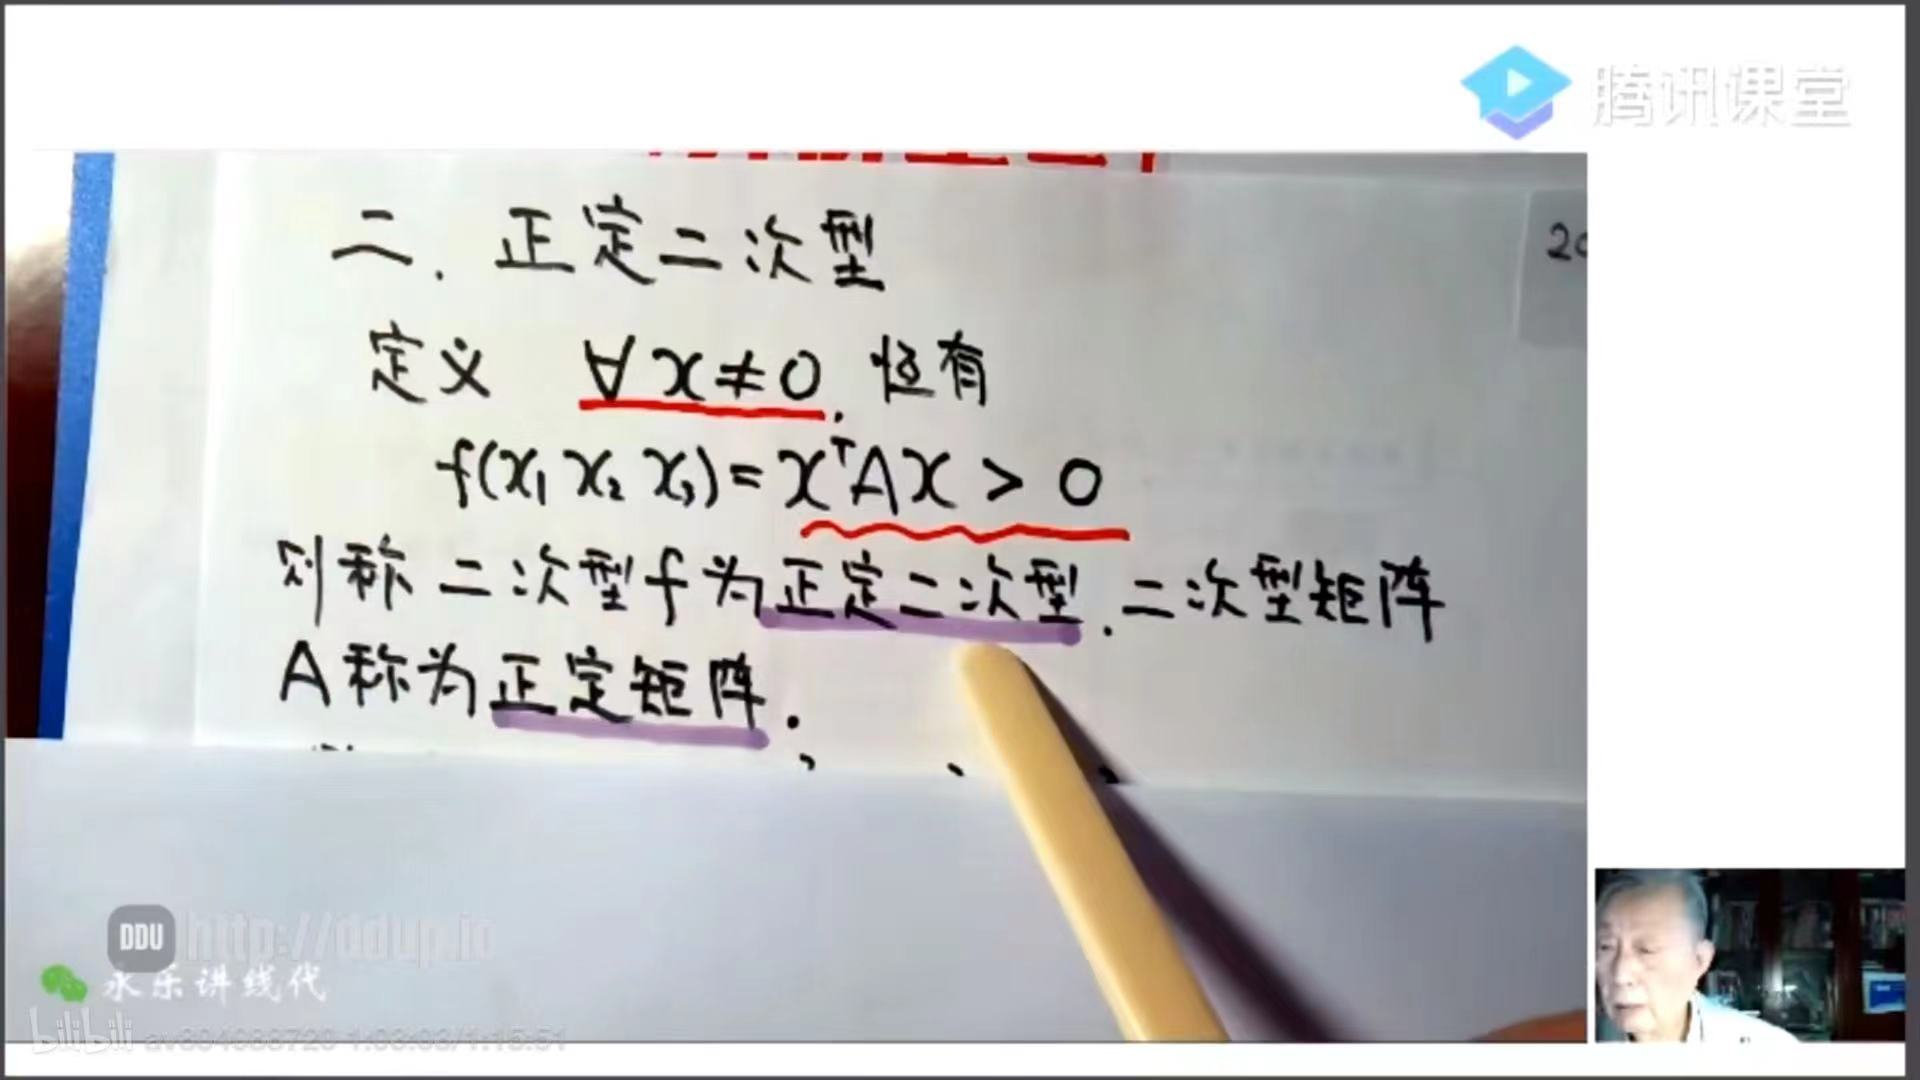 腾讯课堂
二. 正定二次型
20
定义 ∀x≠0, 恒有
f(x₁ x₂ x₃)=xᵀAx > 0
则称二次型f为正定二次型.二次型矩阵
A称为正定矩阵.
DDU http://ddup.io
永乐讲线代
bilibili